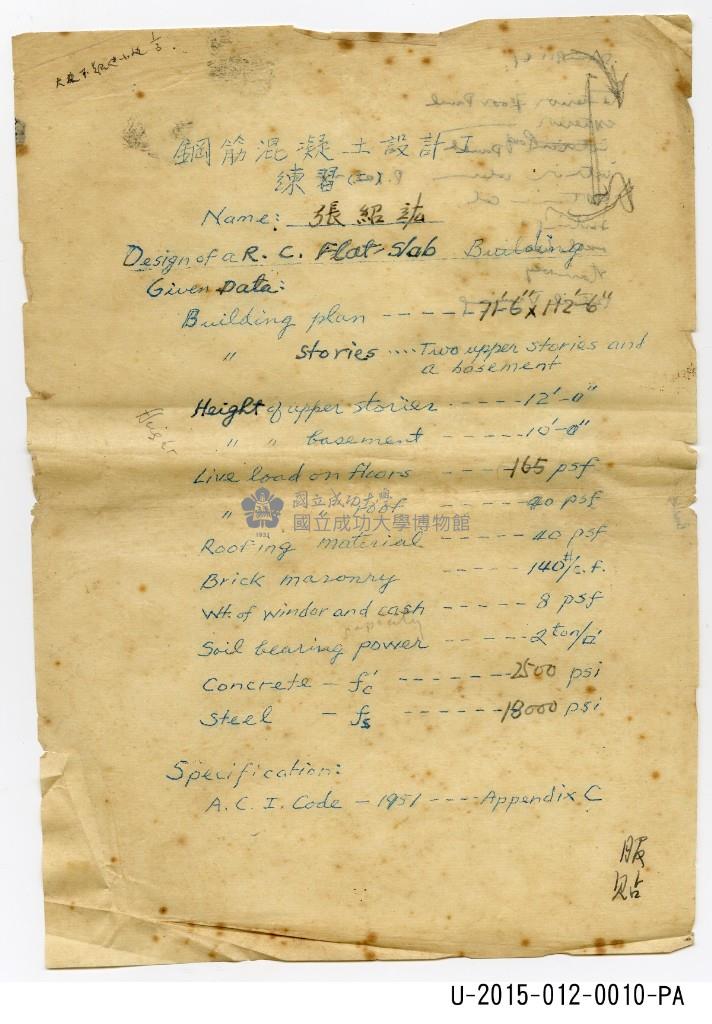 鋼筋混凝土設計 I
練習 (二)
Name: 張紹
Design of a R. C. Flat-Slab Building
Given Data:
Building plan ---- 71'-6" x 112'-6"
" stories .... Two upper stories and
a basement
Height of upper stories ----- 12'-0"
" " basement ----- 10'-0"
Live load on floors ---- 165 psf
" " " roof ----- 40 psf
Roofing material ----- 40 psf
Brick masonry ----- 140#/c.f.
Wt. of windor and cash ----- 8 psf
capacity
Soil bearing power ----- 2 ton/□'
Concrete - f'c ------- 2500 psi
Steel - fs ------ 18000 psi
Specification:
A. C. I. Code - 1951 ---- Appendix C
服
貼
國立成功大學
國立成功大學博物館
1931
Height
U-2015-012-0010-PA